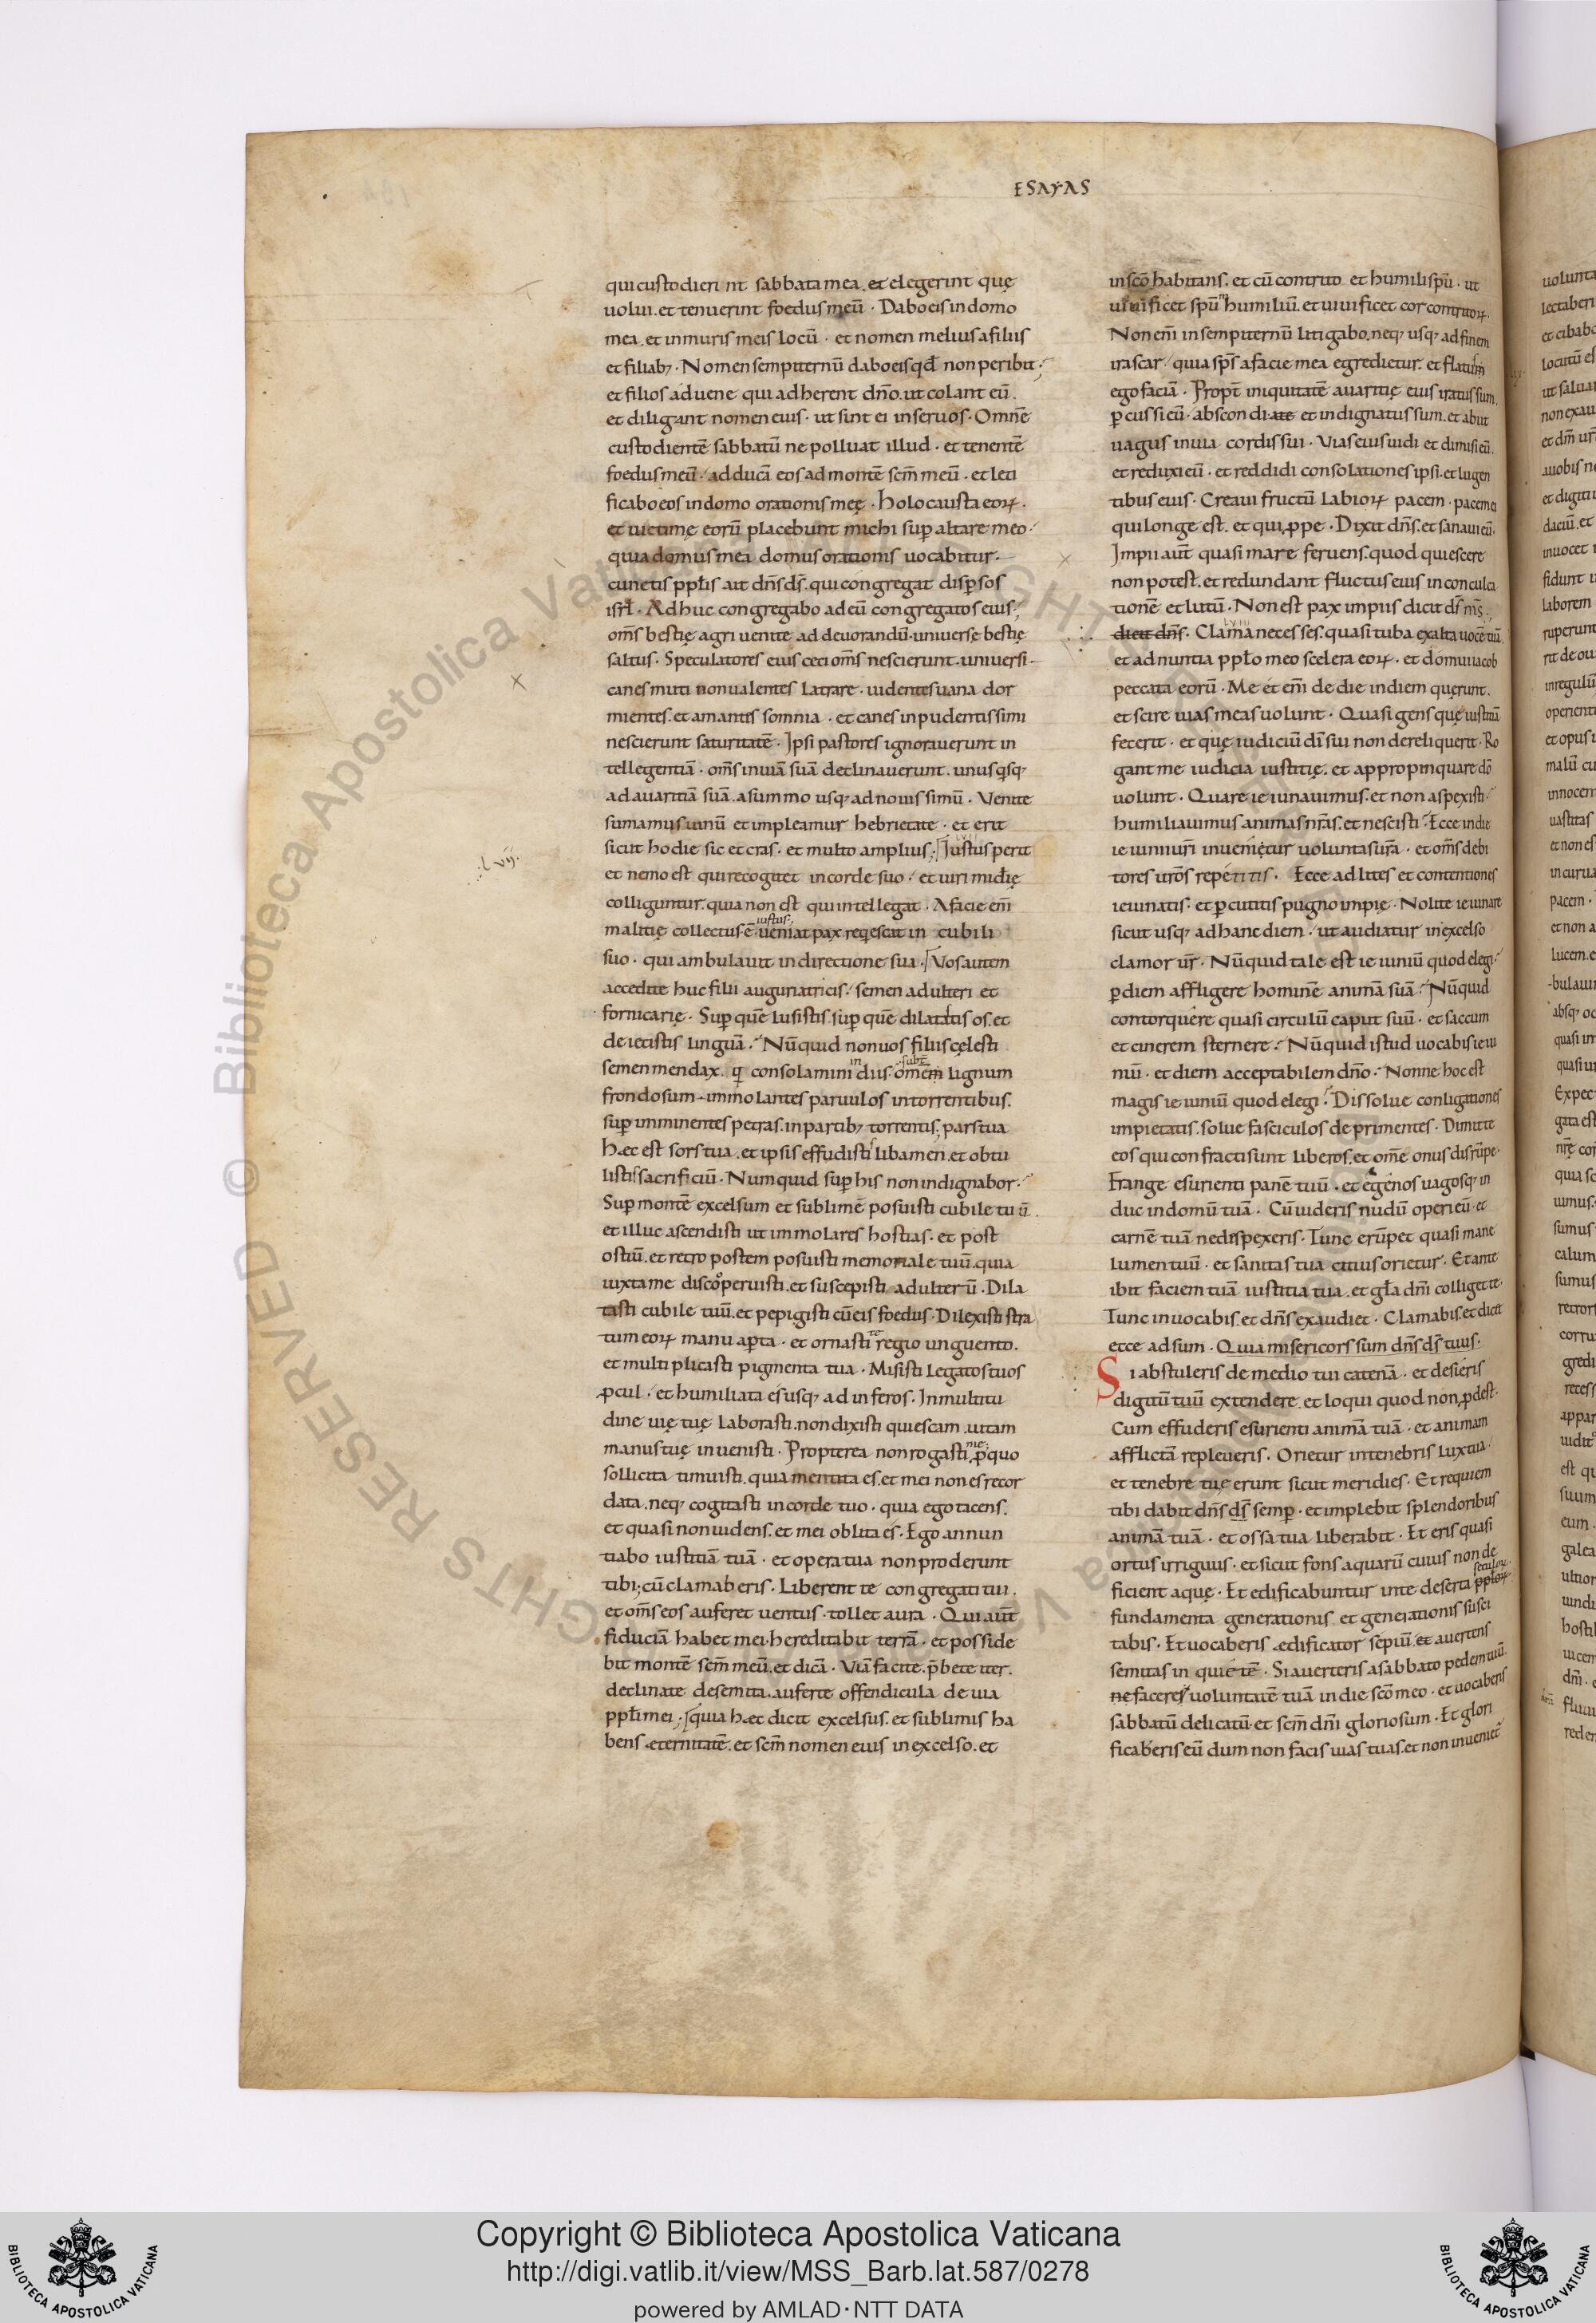 ESAYAS
qui custodieri nt sabbata mea. et elegerint quę
uolui. et tenuerint foedus meū · Dabo eis in domo
mea. et in muris meis locū · et nomen melius a filiis
et filiab; · Nomen sempiternū dabo eis qđ non peribit ·
et filios aduene qui adherent dño. ut colant eū.
et diligant nomen eius · ut sint ei in seruos · Omnē
custodientē sabbatū ne polluat illud · et tenentē
foedus meū · adducā eos ad montē scm̄ meū · et leti
ficabo eos in domo orationis meę · holocausta eoꝝ ·
et uictimę eorū placebunt michi suꝑ altare meo ·
quia domus mea domus orationis uocabitur.
cunctis ppłis ait dn̄s ds̄. qui congregat disꝑsos
isrł · Adhuc congregabo ad eū congregatos eius ;
om̄s bestię agri uenite ad deuorandū. uniuerse bestię
saltus · Speculatores eius ceci om̄s nescierunt. uniuersi
canes muti non ualentes latrare · uidentes uana dor
mientes. et amantes somnia · et canes inpudentissimi
nescierunt saturitatē · Ipsi pastores ignorauerunt in
tellegentiā · om̄s in uiā suā declinauerunt. unusqsq;
ad auaritiā suā. a summo usq; ad nouissimū · Venite
sumamus uinū et impleamur hebrietate · et erit
LVII
sicut hodie sic et cras · et multo amplius ; Iustus perit
l vij.
et nemo est qui recogitet in corde suo · et uiri mīdię
colliguntur. quia non est qui intellegat · A facie enī
iustus
malitię collectus ē. ueniat pax reqescat in cubili
suo · qui ambulauit in directione sua · Vos autem
accedite huc filii auguriatricis · semen adulteri et
fornicarię · Suꝑ quē lusistis. suꝑ quē dilatatis os. et
deiecistis linguā · Nūquid non uos filii scęlesti
in subt̄
semen mendax. q consolamini diis. omēm lignum
frondosum · immolantes paruulos in torrentibus.
suꝑ imminentes petras. in partib; torrentis pars tua
Hæc est sors tua. et ipsis effudisti libamen. et obtu
listis sacrificiū · Numquid suꝑ his non indignabor ·
Suꝑ montē excelsum et sublimē posuisti cubile tuū.
et illuc ascendisti ut immolares hostias · et post
ostiū. et retro postem posuisti memoriale tuū. quia
iuxta me discooperuisti. et suscepisti adulterū · Dila
tasti cubile tuū. et pepigisti cū eis foedus · Dilexisti stra
te
tum eoꝝ manu aꝑta · et ornasti regio unguento.
et multiplicasti pigmenta tua · Misisti legatos tuos
ꝓcul · et humiliata es usq; ad inferos · In multitu
dine uię tuę laborasti. non dixisti quiescam. uitam
me
manus tuę inuenisti · Propterea non rogasti. ꝓ quo
sollicita timuisti. quia mentita es. et mei non es recor
data. neq; cogitasti in corde tuo · quia ego tacens.
et quasi non uidens. et mei oblita es · Ego annun
tiabo iustitiā tuā · et opera tua non proderunt
tibi; cū clamaberis · Liberent te congregati tui.
et om̄s eos auferet uentus · tollet aura · Qui aut̄
fiduciā habet mei · hereditabit terrā · et posside
bit montē scm̄ meū. et dicā · Viā facite. p̄bete iter.
declinate de semita. auferte offendicula de uia
ppłi mei ; quia hæc dicit excelsus. et sublimis ha
bens æternitatē. et scm̄ nomen eius in excelso. et
in scō habitans. et cū contrito et humili spū · ut
uiuificet spū humiliū. et uiuificet cor contritoꝝ.
Non enī in sempiternū litigabo. neq; usq; ad finem
irascar · quia sp̄s a facie mea egredietur. et flatus
ego faciā · Propt̄ iniquitatē auaritię eius iratus sum.
ꝑcussi eū · abscondi ate et indignatus sum. et abiit
uagus in uia cordis sui · Vias eius uidi et dimisi eū.
et reduxi eū · et reddidi consolationes ipsi. et lugen
tibus eius · Creaui fructū labioꝝ pacem · pacem ei
qui longe est. et qui ꝓpe · Dixit dn̄s. et sanaui eū.
Impii aut̄ quasi mare feruens. quod quiescere
non potest. et redundant fluctus eius in conculca
tionē et lutū · Non est pax impiis dicit ds̄ ms̄.
LVIII
dicit dn̄s · Clama ne cesses. quasi tuba exalta uocē tuā.
et adnuntia ppło meo scelera eoꝝ · et domui iacob
peccata eorū · Me et enī de die in diem quęrunt.
et scire uias meas uolunt · Quasi gens quę iustitiā
fecerit · et quę iudiciū dī sui non dereliquerit · Ro
gant me iudicia iustitię. et appropinquare dō
uolunt · Quare ieiunauimus. et non aspexisti ·
humiliauimus animas nr̄as. et nescisti · Ecce in die
ieiunii ur̄i inuenietur uoluntas ur̄a · et om̄s debi
tores uros repetitis · Ecce ad lites et contentiones
ieiunatis · et ꝑcutitis pugno impię · Nolite ieiunare
sicut usq; ad hanc diem · ut audiatur in excelso
clamor ur̄ · Nūquid tale est ieiuniū quod elegi ·
ꝑ diem affligere hominē animā suā · Nūquid
contorquere quasi circulū caput suū · et saccum
et cinerem sternere · Nūquid istud uocabis ieiu
niū · et diem acceptabilem dño · Nonne hoc est
magis ieiuniū quod elegi · Dissolue conligationes
impietatis. solue fasciculos deprimentes · Dimitte
eos qui confracti sunt liberos. et om̄e onus disrūpe ·
Frange esurienti panē tuū · et egenos uagosq; in
duc in domū tuā · Cū uideris nudū operi eū · et
carnē tuā ne despexeris · Tunc erūpet quasi mane
lumen tuū · et sanitas tua citius orietur · Et ante
ibit faciem tuā iustitia tua. et gła dn̄i colliget te ·
Tunc inuocabis. et dn̄s exaudiet · Clamabis. et dicet
ecce adsum · Quia misericors sum dn̄s ds̄ tuus ·
Si abstuleris de medio tui catenā · et desieris
digitū tuū extendere. et loqui quod non ꝓdest ·
Cum effuderis esurienti animā tuā · et animam
afflictā repleueris · Orietur in tenebris lux tua ·
et tenebre tuę erunt sicut meridies · Et requiem
tibi dabit dn̄s ds̄ semꝑ · et implebit splendoribus
animā tuā · et ossa tua liberabit · Et eris quasi
ortus irriguus · et sicut fons aquarū cuius non de
seculoꝝ
ficient aquę · Et edificabuntur in te deserta ppłoꝝ
fundamenta generationis et generationis susci
tabis · Et uocaberis ædificator sepiū. et auertens
semitas in quietē · Si auerteris a sabbato pedem tuū.
ne faceres uoluntatē tuā in die scō meo · et uocaberis
sabbatū delicatū · et scm̄ dn̄i gloriosum · Et glori
ficaberis eū dum non facis uias tuas. et non inueniet̄
Copyright © Biblioteca Apostolica Vaticana
http://digi.vatlib.it/view/MSS_Barb.lat.587/0278
powered by AMLAD·NTT DATA
© Biblioteca Apostolica Vaticana
BIBLIOTECA APOSTOLICA VATICANA
BIBLIOTECA APOSTOLICA VATICANA